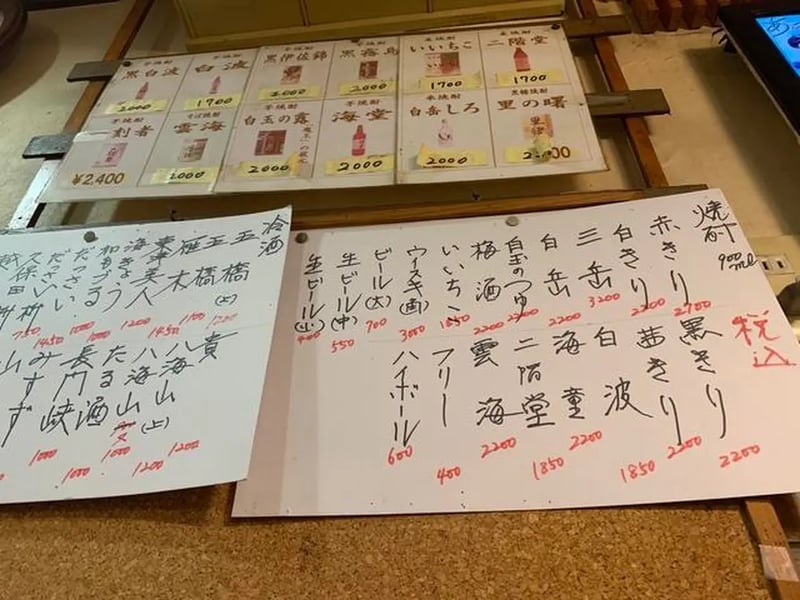 芋焼酎 黒白波 2000
芋焼酎 白波 1700
芋焼酎 黒伊佐錦 2000
芋焼酎 黒霧島 2000
麦焼酎 いいちこ 1700
麦焼酎 二階堂 1700
芋焼酎 一刻者 ¥2,400
そば焼酎 雲海 2000
芋焼酎 白玉の露 2000
芋焼酎 海堂 2000
米焼酎 白岳しろ 2000
黒糖焼酎 里の曙
焼酎 900ml
税込
赤きり 2700
白きり 2200
三岳 3200
白岳 2200
白玉のつゆ 2200
梅酒 2200
いいちこ 1850
ウイスキ(酉) 3000
ビール(大) 700
生ビール(中) 550
生ビール(小) 400
黒きり 2200
茜きり 2200
白波 1850
海童 2200
二階堂 1850
雲海 2200
フリー 400
ハイボール 600
冷酒
玉橋(上)
玉橋 1100
雁木 1450
東洋美人
海きょう 1200
和もうる 1000
だっさい
だっさい 1450
久保田 750
越
貴 1200
八海山(上) 1200
八海山 1000
たる酒 1000
長門峡 1000
みすず
山